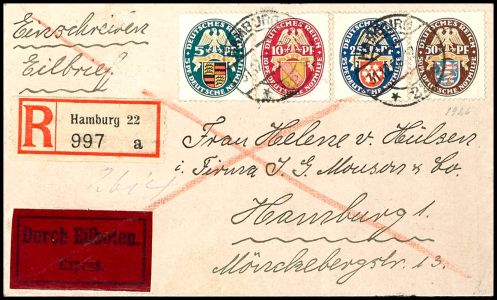 Einschreiben
Eilbrief
DEUTSCHES REICH
5 PF
DEUTSCHE NOTHILFE
DEUTSCHES REICH
10 PF
DEUTSCHE NOTHILFE
DEUTSCHES REICH
25 PF
DEUTSCHE NOTHILFE
DEUTSCHES REICH
50 PF
DEUTSCHE NOTHILFE
HAMBURG
HAMBURG
1926
R Hamburg 22
997 a
Frau Helene v. Hülsen
i. Firma J. G. Mouson & Co.
Hamburg 1.
Mönckebergstr. 13.
Durch Eilboten.
Exprès.